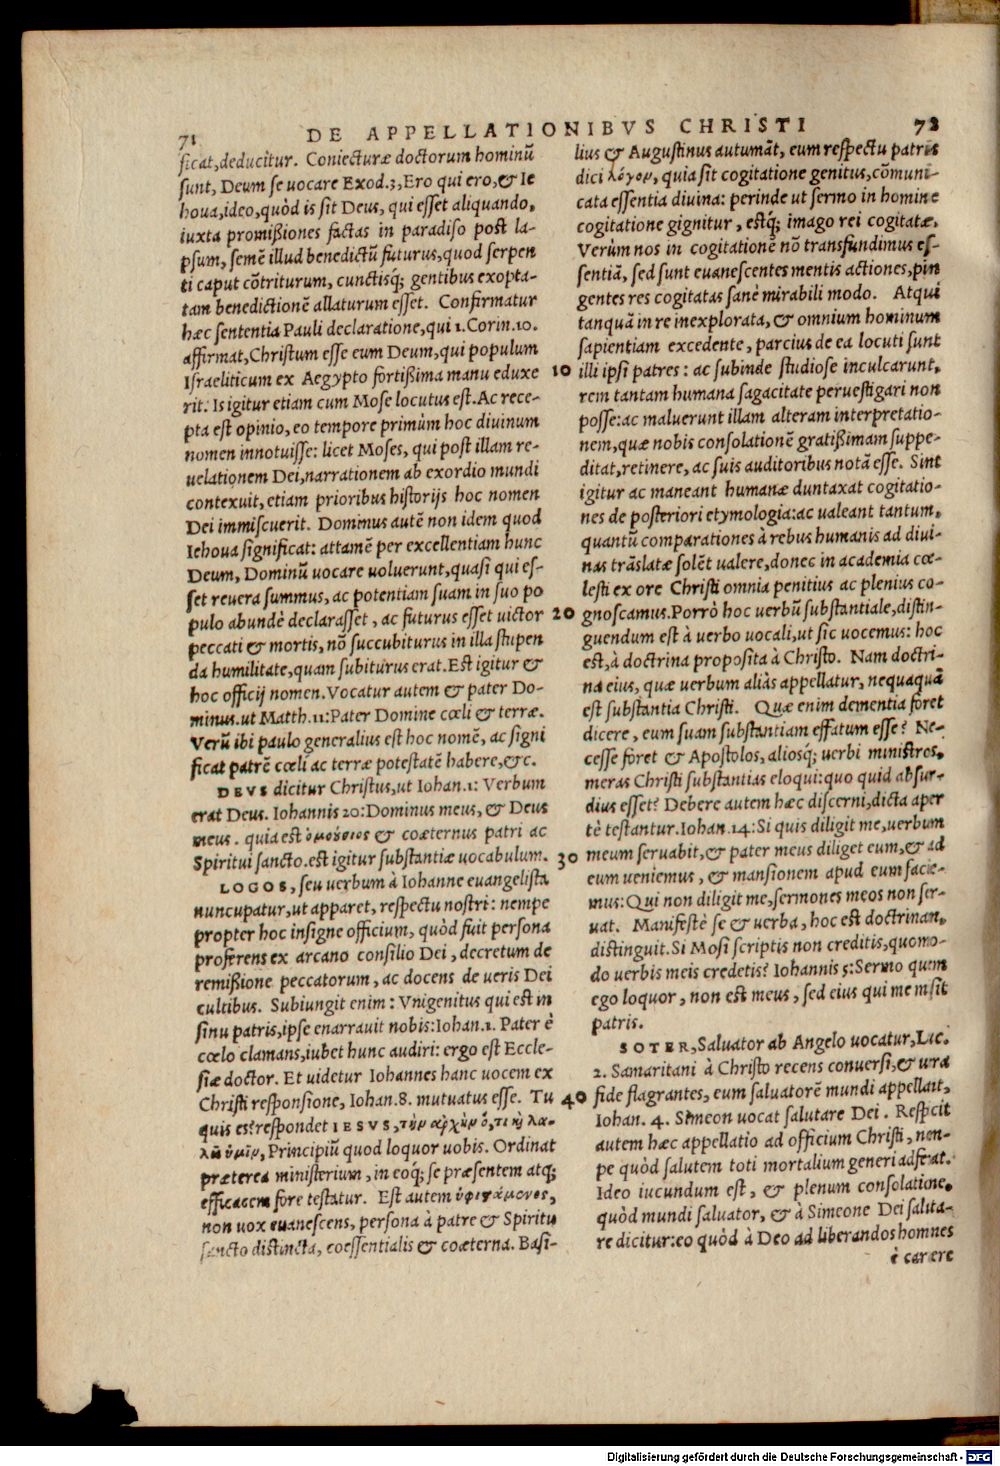 71 DE APPELLATIONIBVS CHRISTI 72
ficat, deducitur. Coniecturæ doctorum hominũ
sunt, Deum se uocare Exod.3, Ero qui ero, & Ie
houa, ideo, quòd is sit Deus, qui esset aliquando,
iuxta promißiones factas in paradiso post la-
psum, semẽ illud benedictũ futurus, quod serpen
ti caput cõtriturum, cunctisq́; gentibus exopta-
tam benedictionẽ allaturum esset. Confirmatur
hæc sententia Pauli declaratione, qui 1. Corin. 10.
affirmat, Christum esse eum Deum, qui populum
Israeliticum ex Aegypto fortißima manu eduxe
rit. Is igitur etiam cum Mose locutus est. Ac rece-
pta est opinio, eo tempore primùm hoc diuinum
nomen innotuisse: licet Moses, qui post illam re-
uelationem Dei, narrationem ab exordio mundi
contexuit, etiam prioribus historijs hoc nomen
Dei immiscuerit. Dominus autẽ non idem quod
Iehoua significat: attamẽ per excellentiam hunc
Deum, Dominũ uocare uoluerunt, quasi qui es-
set reuera summus, ac potentiam suam in suo po
pulo abundè declarasset, ac futurus esset uictor
peccati & mortis, nõ succubiturus in illa stupen
da humilitate, quam subiturus erat. Est igitur &
hoc officij nomen. Vocatur autem & pater Do-
minus. ut Matth. 11: Pater Domine cœli & terræ.
Verũ ibi paulo generalius est hoc nomẽ, ac signi
ficat patrẽ cœli ac terræ potestatẽ habere, &c.
DEVS dicitur Christus, ut Iohan. 1: Verbum
erat Deus. Iohannis 20: Dominus meus, & Deus
meus. quia est ὁμοούσιος & coæternus patri ac
Spiritui sancto. est igitur substantiæ uocabulum.
LOGOS, seu uerbum à Iohanne euangelista
nuncupatur, ut apparet, respectu nostri: nempe
propter hoc insigne officium, quòd fuit persona
proferens ex arcano consilio Dei, decretum de
remißione peccatorum, ac docens de ueris Dei
cultibus. Subiungit enim: Vnigenitus qui est in
sinu patris, ipse enarrauit nobis: Iohan. 1. Pater è
cœlo clamans, iubet hunc audiri: ergo est Eccle-
siæ doctor. Et uidetur Iohannes hanc uocem ex
Christi responsione, Iohan. 8. mutuatus esse. Tu
quis es? respondet IESVS, τὴν ἀρχὴν ὅ, τι κỳ λα-
λῶ ὑμῖν, Principiũ quod loquor uobis. Ordinat
præterea ministerium, in eoq́; se præsentem atq;
efficacem fore testatur. Est autem ὑφιστάμενος,
non uox euanescens, persona à patre & Spiritu
sancto distincta, coessentialis & coæterna. Basi-
lius & Augustinus autumãt, eum respectu patris
dici λόγον, quia sit cogitatione genitus, cõmuni-
cata essentia diuina: perinde ut sermo in homine
cogitatione gignitur, estq́; imago rei cogitatæ.
Verùm nos in cogitationẽ nõ transfundimus es-
sentiã, sed sunt euanescentes mentis actiones, pin
gentes res cogitatas sanè mirabili modo. Atqui
tanquã in re inexplorata, & omnium hominum
sapientiam excedente, parcius de ea locuti sunt
10 illi ipsi patres: ac subinde studiose inculcarunt,
rem tantam humana sagacitate peruestigari non
posse: ac maluerunt illam alteram interpretatio-
nem, quæ nobis consolationẽ gratißimam suppe-
ditat, retinere, ac suis auditoribus notã esse. Sint
igitur ac maneant humanæ duntaxat cogitatio-
nes de posteriori etymologia: ac ualeant tantum,
quantũ comparationes à rebus humanis ad diui-
nas trãslatæ solẽt ualere, donec in academia cœ-
lesti ex ore Christi omnia penitius ac plenius co-
20 gnoscamus. Porrò hoc uerbũ substantiale, distin-
guendum est à uerbo uocali, ut sic uocemus: hoc
est, à doctrina proposita à Christo. Nam doctri-
na eius, quæ uerbum aliàs appellatur, nequaquã
est substantia Christi. Quæ enim dementia foret
dicere, eum suam substantiam effatum esse? Ne-
cesse foret & Apostolos, aliosq́; uerbi ministros,
meras Christi substantias eloqui: quo quid absur-
dius esset? Debere autem hæc discerni, dicta aper
tè testantur. Iohan. 14: Si quis diligit me, uerbum
30 meum seruabit, & pater meus diliget eum, & ad
eum ueniemus, & mansionem apud eum facie-
mus: Qui non diligit me, sermones meos non ser-
uat. Manifestè se & uerba, hoc est doctrinam,
distinguit. Si Mosi scriptis non creditis, quomo-
do uerbis meis credetis? Iohannis 5: Sermo quem
ego loquor, non est meus, sed eius qui me misit
patris.
SOTER, Saluator ab Angelo uocatur, Luc.
2. Samaritani à Christo recens conuersi, & uera
40 fide flagrantes, eum saluatorẽ mundi appellant,
Iohan. 4. Simeon uocat salutare Dei. Respicit
autem hæc appellatio ad officium Christi, nem-
pe quòd salutem toti mortalium generi adferat.
Ideo iucundum est, & plenum consolatione,
quòd mundi saluator, & à Simeone Dei saluta-
re dicitur: eo quòd à Deo ad liberandos homines
è carcere
Digitalisierung gefördert durch die Deutsche Forschungsgemeinschaft - DFG